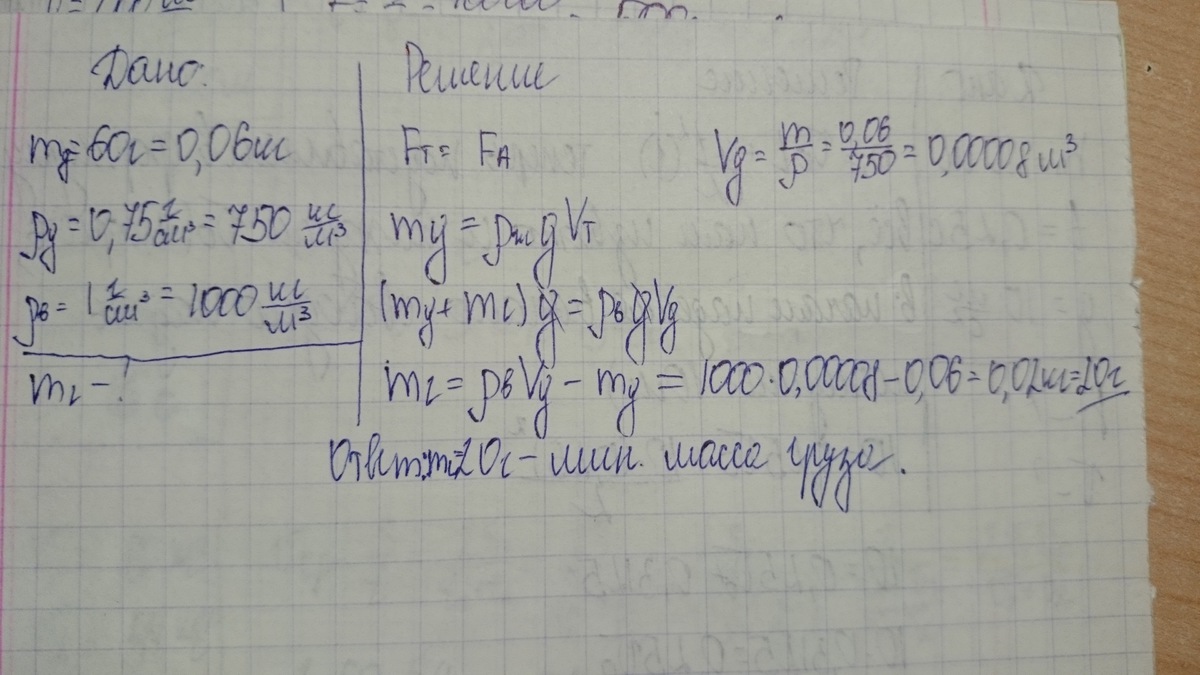 Дано:
m₉=60г=0,06кг
ρ₉=0,75 г/см³=750 кг/м³
ρв=1 г/см³=1000 кг/м³
mг-?
Решение
Fт= FA
Vg= m/ρ = 0,06/750 = 0,00008 м³
mg=ρжgVт
(mg+mг)g=ρвgVg
mг=ρвVg-mg=1000·0,00008-0,06=0,02кг=20г
Ответ:m=20г-мин. масса груза.